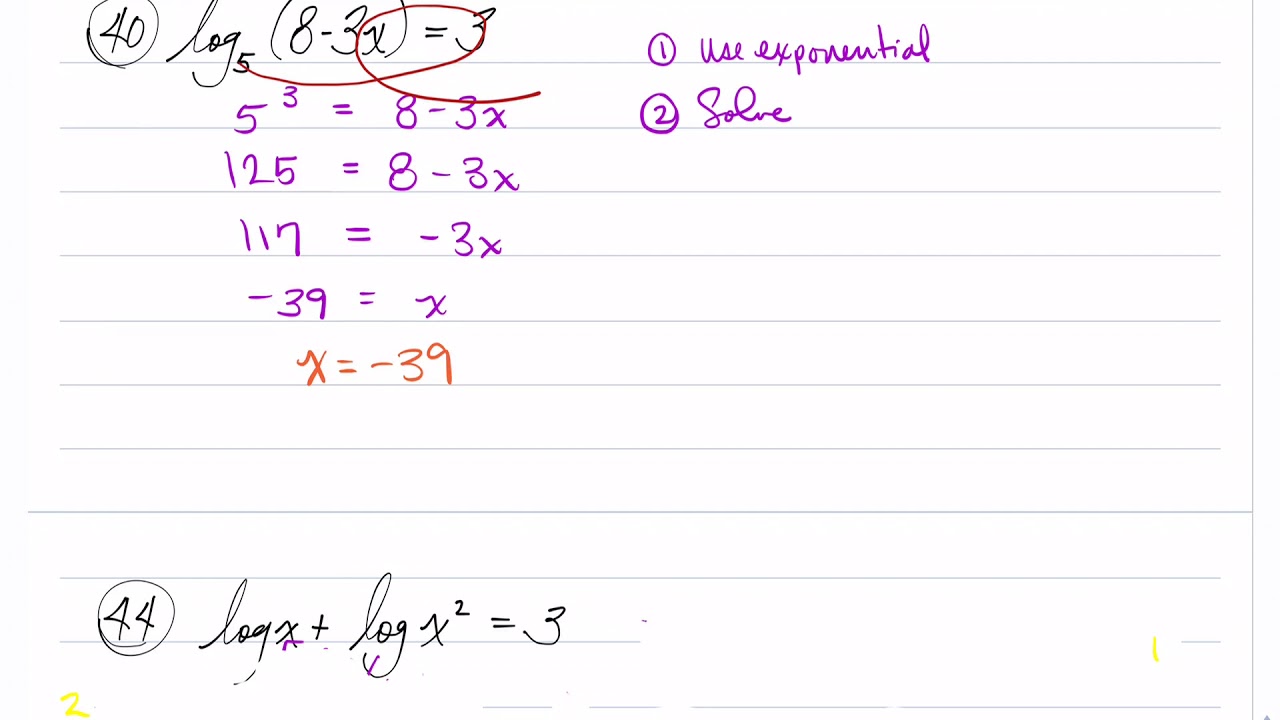 40 log₅ (8-3x) = 3
① Use exponential
5³ = 8-3x
② Solve
125 = 8-3x
117 = -3x
-39 = x
x = -39
44 log x + log x² = 3
1
2